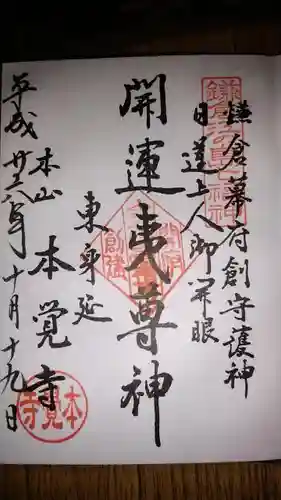 鎌倉幕府創守護神
日蓮上人御開眼
開運夷尊神
東身延
本山 本覚寺
平成廿八年十月十九日
創建
本覚寺